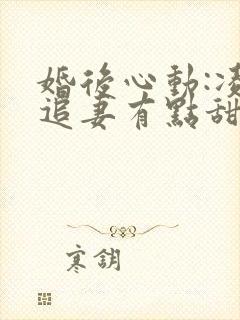 婚後心動:凌
追妻有點甜
寒鈅